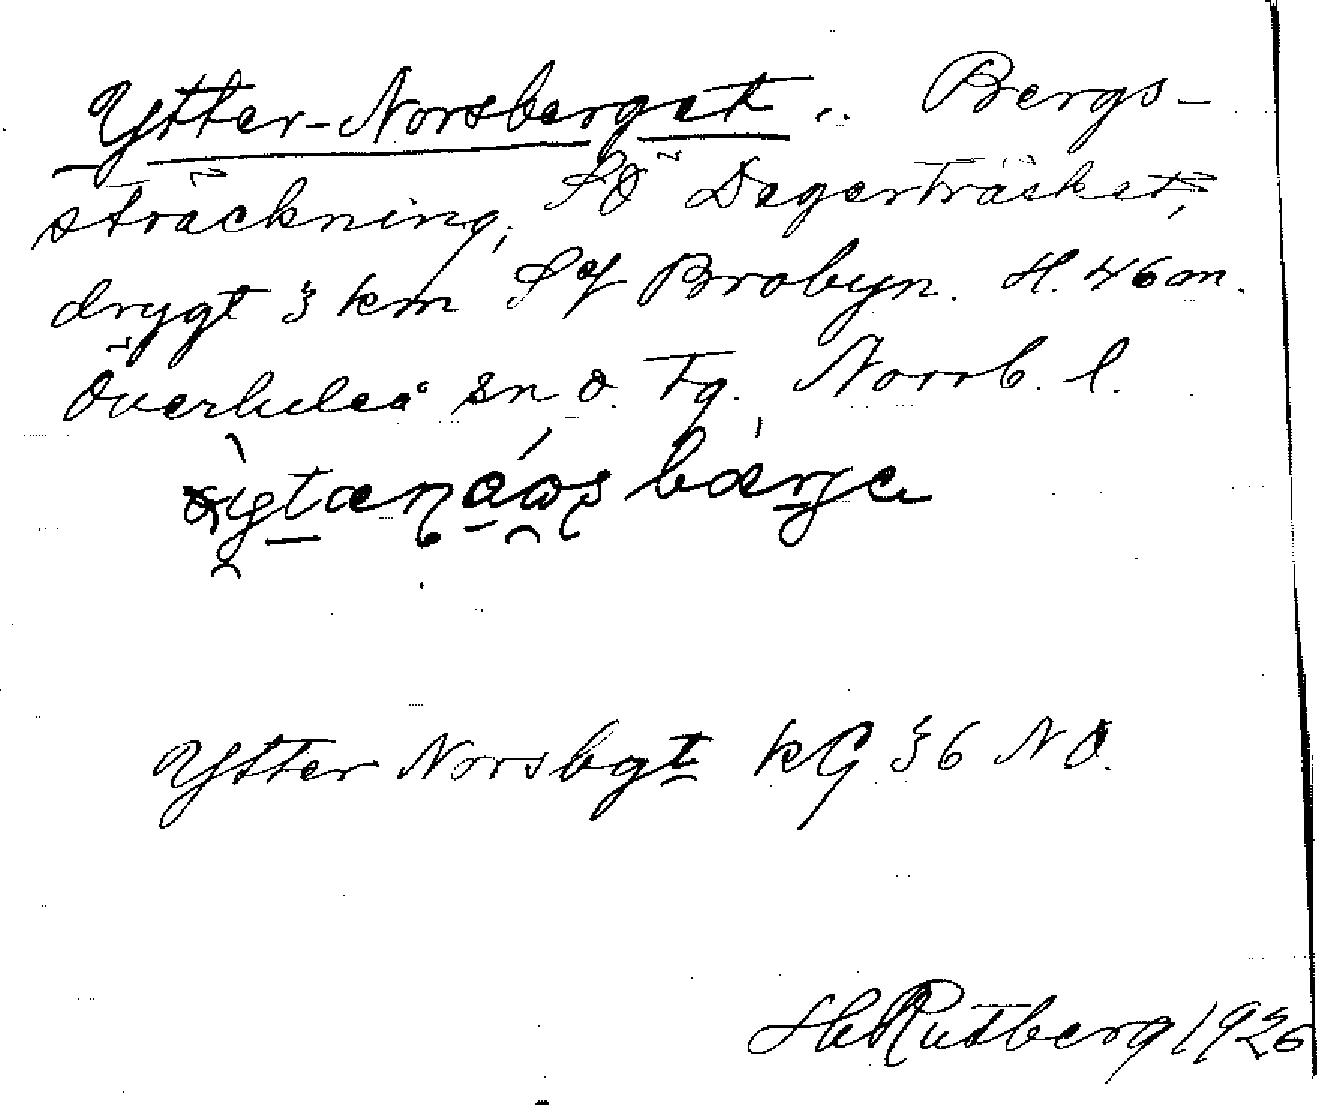 Ytter-Norsberget. Bergs-
sträckning, SÖ Degerträsket,
drygt 3 km S of Brobyn. H. 46 m.
Överluleå sn o. tg. Norrb. l.
Ytter Norsbgt kG 36 NO.
H Rutberg 1926